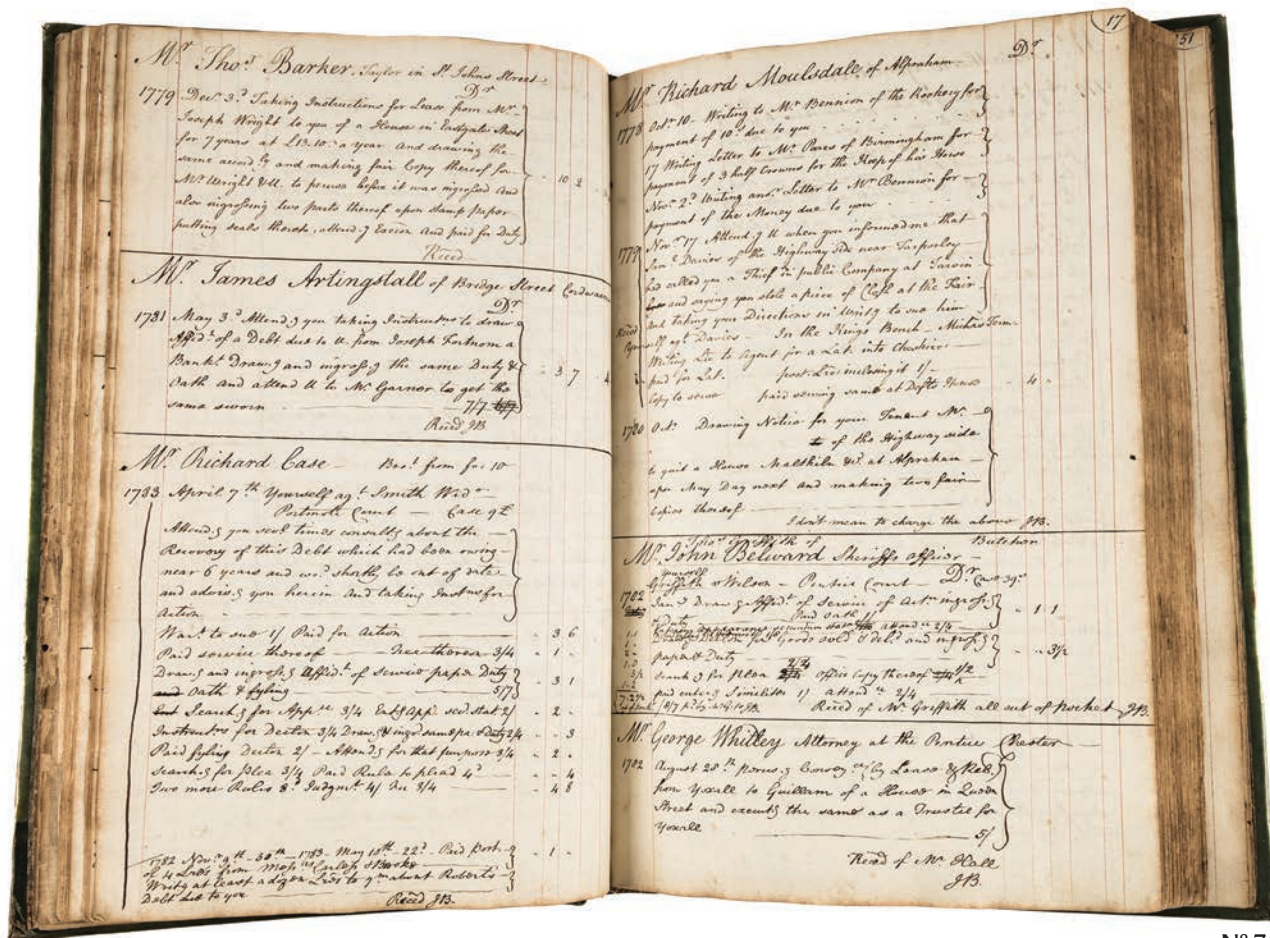 Mr. Thos. Barker Taylor in St. Johns Street
Dr.
1779 Decr. 3d. Taking Instructions for Lease from Mr.
Joseph Wright to you of a House in Eastgate Street
for 7 years at £13.10. a year and drawing the
same accordly and making fair Copy thereof for
Mr. Wright & U. to peruse before it was ingrossed and
also ingrossing two parts thereof upon Stamp Paper
putting seals thereto, attend.g Execon and paid for Duty
- 10 2
Recd.
Mr. James Artingstall of Bridge Street Cordwainer
Dr.
1781 May 3d. Attend.g you taking Instructns to draw
Affidt. of a Debt due to U. from Joseph Fortnom a
Bankt. Draw.g and ingross.g the same Duty &
Oath and attend U to Mr. Garner to get the
same sworn 7/7
- 3 7
Recd JB.
Mr. Richard Case Brot. from fo. 10
1783 April 7th. Yourself agt. Smith Widw.
Portmote Court - Case 9£
Attend.g you sevl times consultg about the
Recovery of this Debt which had been owing
near 6 years and wod. shortly be out of date
and advis.g you herein and taking Instrns for
Action
Warrt. to sue 1/ Paid for Action - 3 6
Paid service thereof Fee thereon 3/4 - 1 -
Draw.g and ingross.g Affidt. of service paper Duty
and Oath & fyling 5/7 - 3 1
Search.g for Appce 3/4 Entg App. 2/ - 2 -
Instructns for Declon 3/4 Draw.g & ingr. same pa & Duty 2/4 - - 3
Paid fyling Declon 2/ - Attend.g for that purpose 3/4 - 2 -
Search.g for plea 3/4 Paid Rule to plead 4d. - - 4
Two more Rules 8d. Judgmt. 4/ Fee 3/4 - 4 8
1782 Novr. 9th - 30th - 1783 - May 18th - 22d. Paid Post. - 1 -
of 4 Lres from Messrs
Writg at least a dozen Lres to ym about Roberts
Debt due to you Recd JB.
17
51
Mr. Richard Moulsdale of Alpraham
Dr.
1778 Octr. 10 - Writing to Mr. Bennion of the Rookery for
payment of 10s. due to you
17 Writing Letter to Mr. Pares of Birmingham for
payment of 3 half Crowns for the Keep of his Horse
Novr. 2d. Writing anor. Letter to Mr. Bennion for
payment of the Money due to you
1779 Novr. 17 Attend.g U when you informed me that
Saml. Davies of the Highway side near Tarporley
had called you a Thief in public Company at Tarvin
and saying you stole a piece of Cloth at the Fair
and taking your Directions in writg to sue him
self agt Davies - In the Kings Bench - Michas Term
Writing Lre to Agent for a Lat. into Cheshire
paid for Lat. post. Lre inclosing it 1/
Copy to serve paid serving same at Defts House - 4 -
1780 Octr. Drawing Notice for your Tenant Mr.
of the Highway side
to quit a House Maltkiln &c. at Alpraham
upon May Day next and making two fair
copies thereof
I don't mean to charge the above JB.
Butcher
Mr. John Belward Sheriffs Officer
yourself
Griffith v Wilson - Pentice Court - Dr. Case 39s.
1782 Jany. Draw.g Affidt. of Service of Actn ingross.g
& Duty Paid Oath 1/ - 1 1
Goods sold & deld. and ingross.g
paper & Duty - - 3½
Search.g for Plea 2/4 Office Copy thereof 1/2
paid enter.g Similiter 1/ attendce 2/4
Recd of Mr. Griffith all out of pocket JB.
Mr. George Whitley Attorney at the Pentice Chester
1782 August 28th. perus.g Conveyce by Lease & Rele.
from Yoxall to Guillam of a House in Queen
Street and executg the same as a Trustee for
Yoxall 5/
Recd of Mr. Hall
JB.
No 7